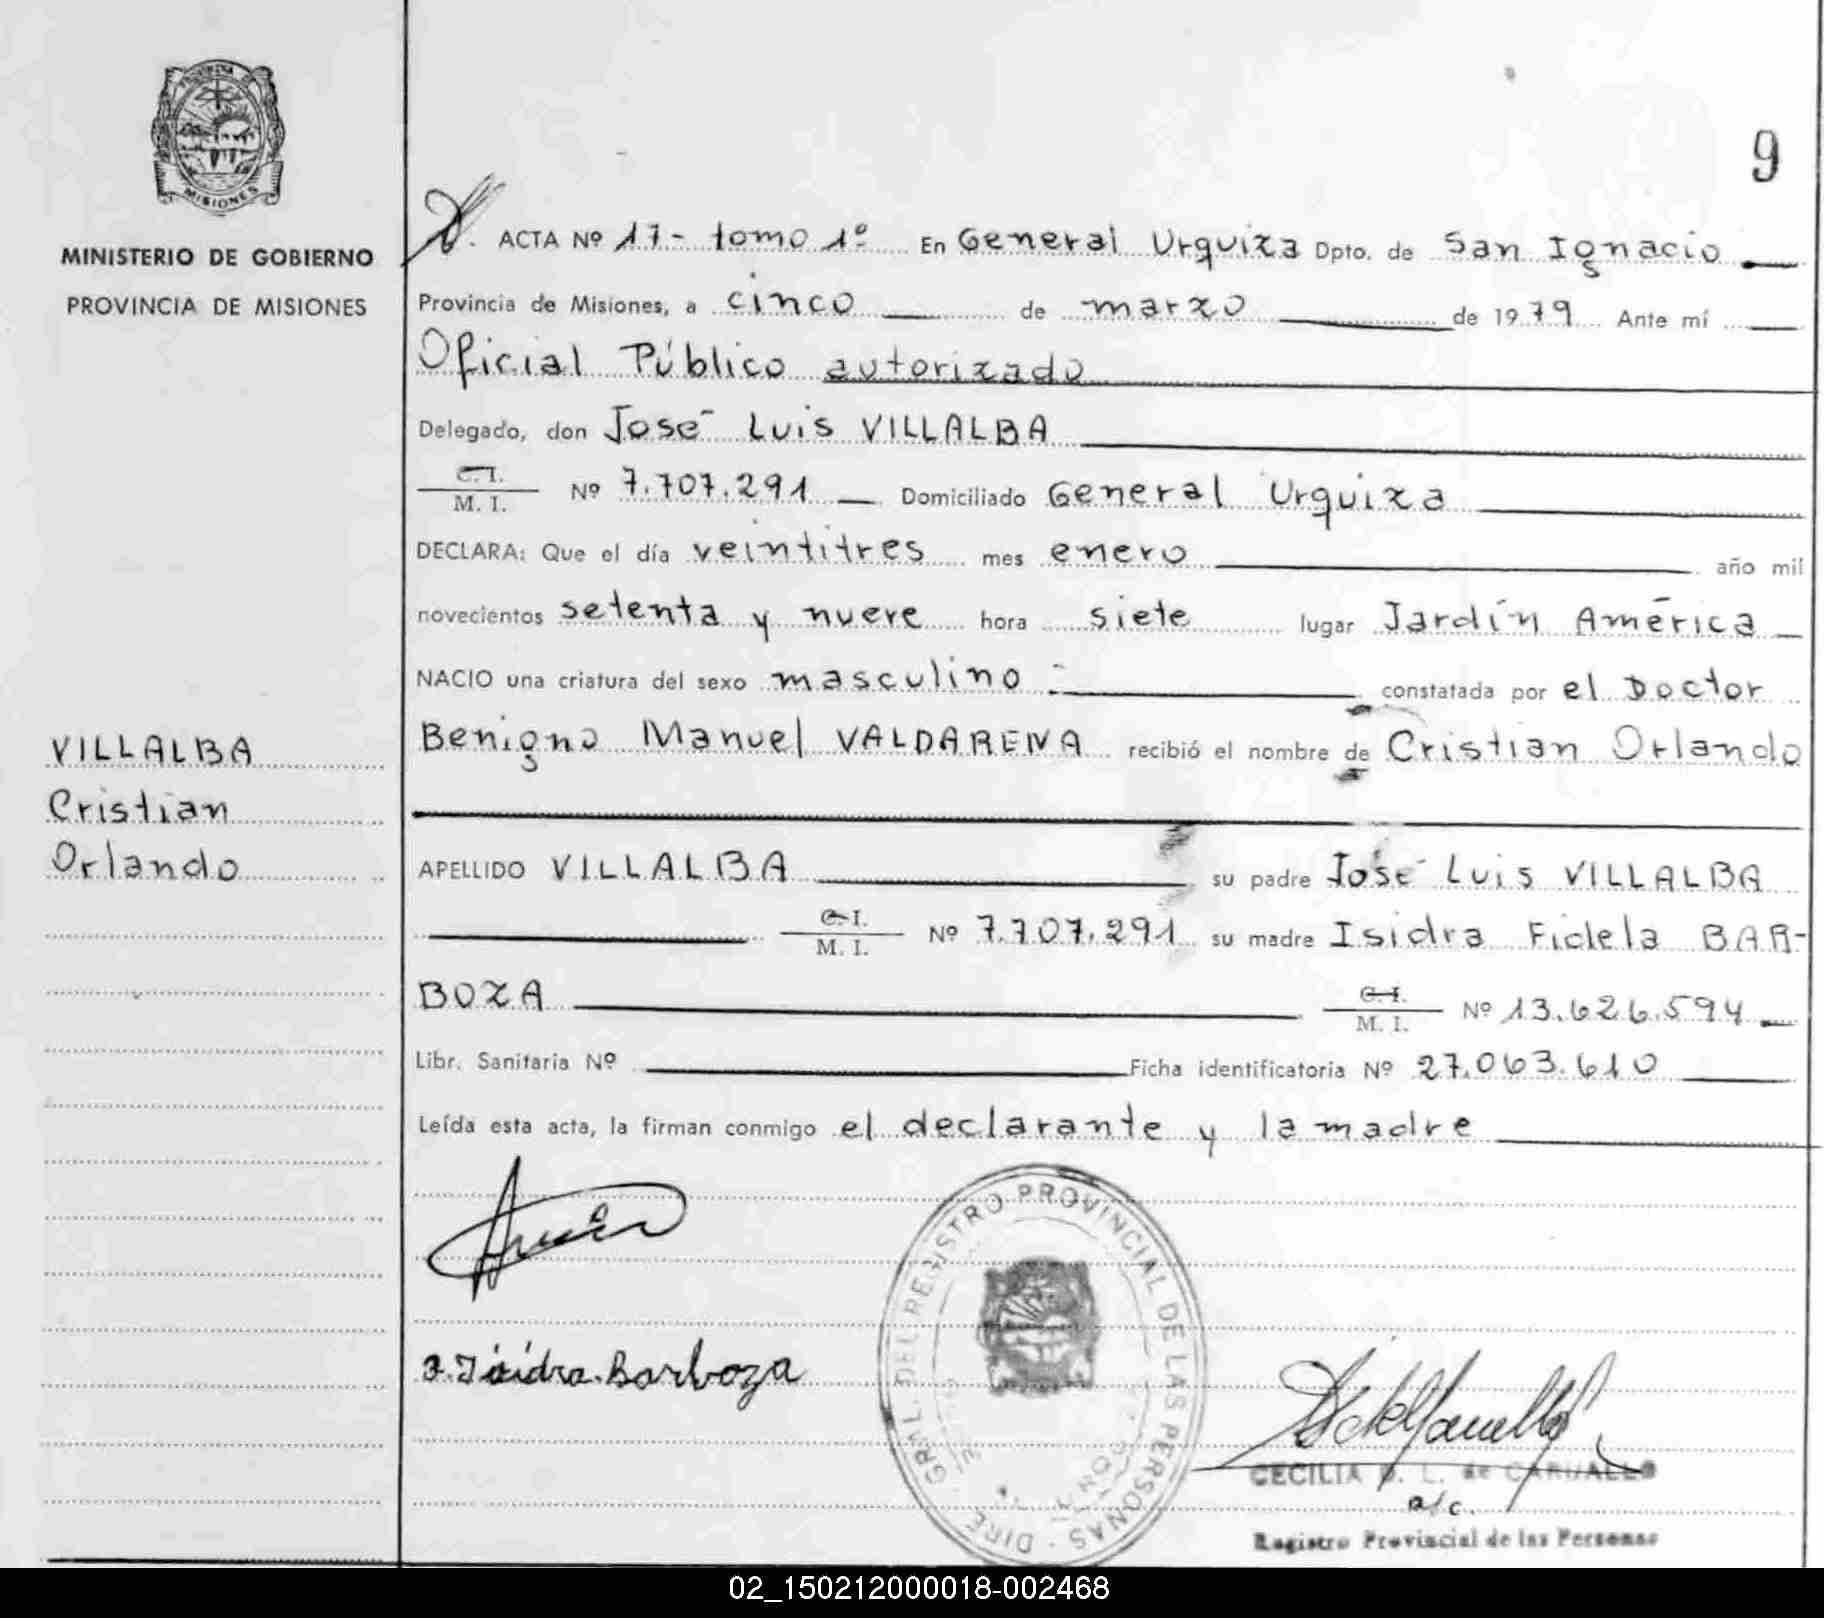 PROVINCIA DE
MISIONES
MINISTERIO DE GOBIERNO
PROVINCIA DE MISIONES
9
ACTA Nº 17- tomo 1º En General Urquiza Dpto. de San Ignacio
Provincia de Misiones, a cinco de marzo de 1979 Ante mí
Oficial Público autorizado
Delegado, don José Luis VILLALBA
C. I.
M. I. Nº 7.707.291 Domiciliado General Urquiza
DECLARA: Que el día veintitres mes enero año mil
novecientos setenta y nueve hora siete lugar Jardín América
NACIO una criatura del sexo masculino constatada por el Doctor
Benigno Manuel VALDARENA recibió el nombre de Cristian Orlando
VILLALBA
Cristian
Orlando
APELLIDO VILLALBA su padre José Luis VILLALBA
C. I.
M. I. Nº 7.707.291 su madre Isidra Fidela BAR-
BOZA C. I.
M. I. Nº 13.626.594
Libr. Sanitaria Nº Ficha identificatoria Nº 27.063.610
Leída esta acta, la firman conmigo el declarante y la madre
Isidra Barboza
DIRE. GRAL. DEL REGISTRO PROVINCIAL DE LAS PERSONAS
CECILIA de CARVALLO
a/c.
Registro Provincial de las Personas
02_150212000018-002468